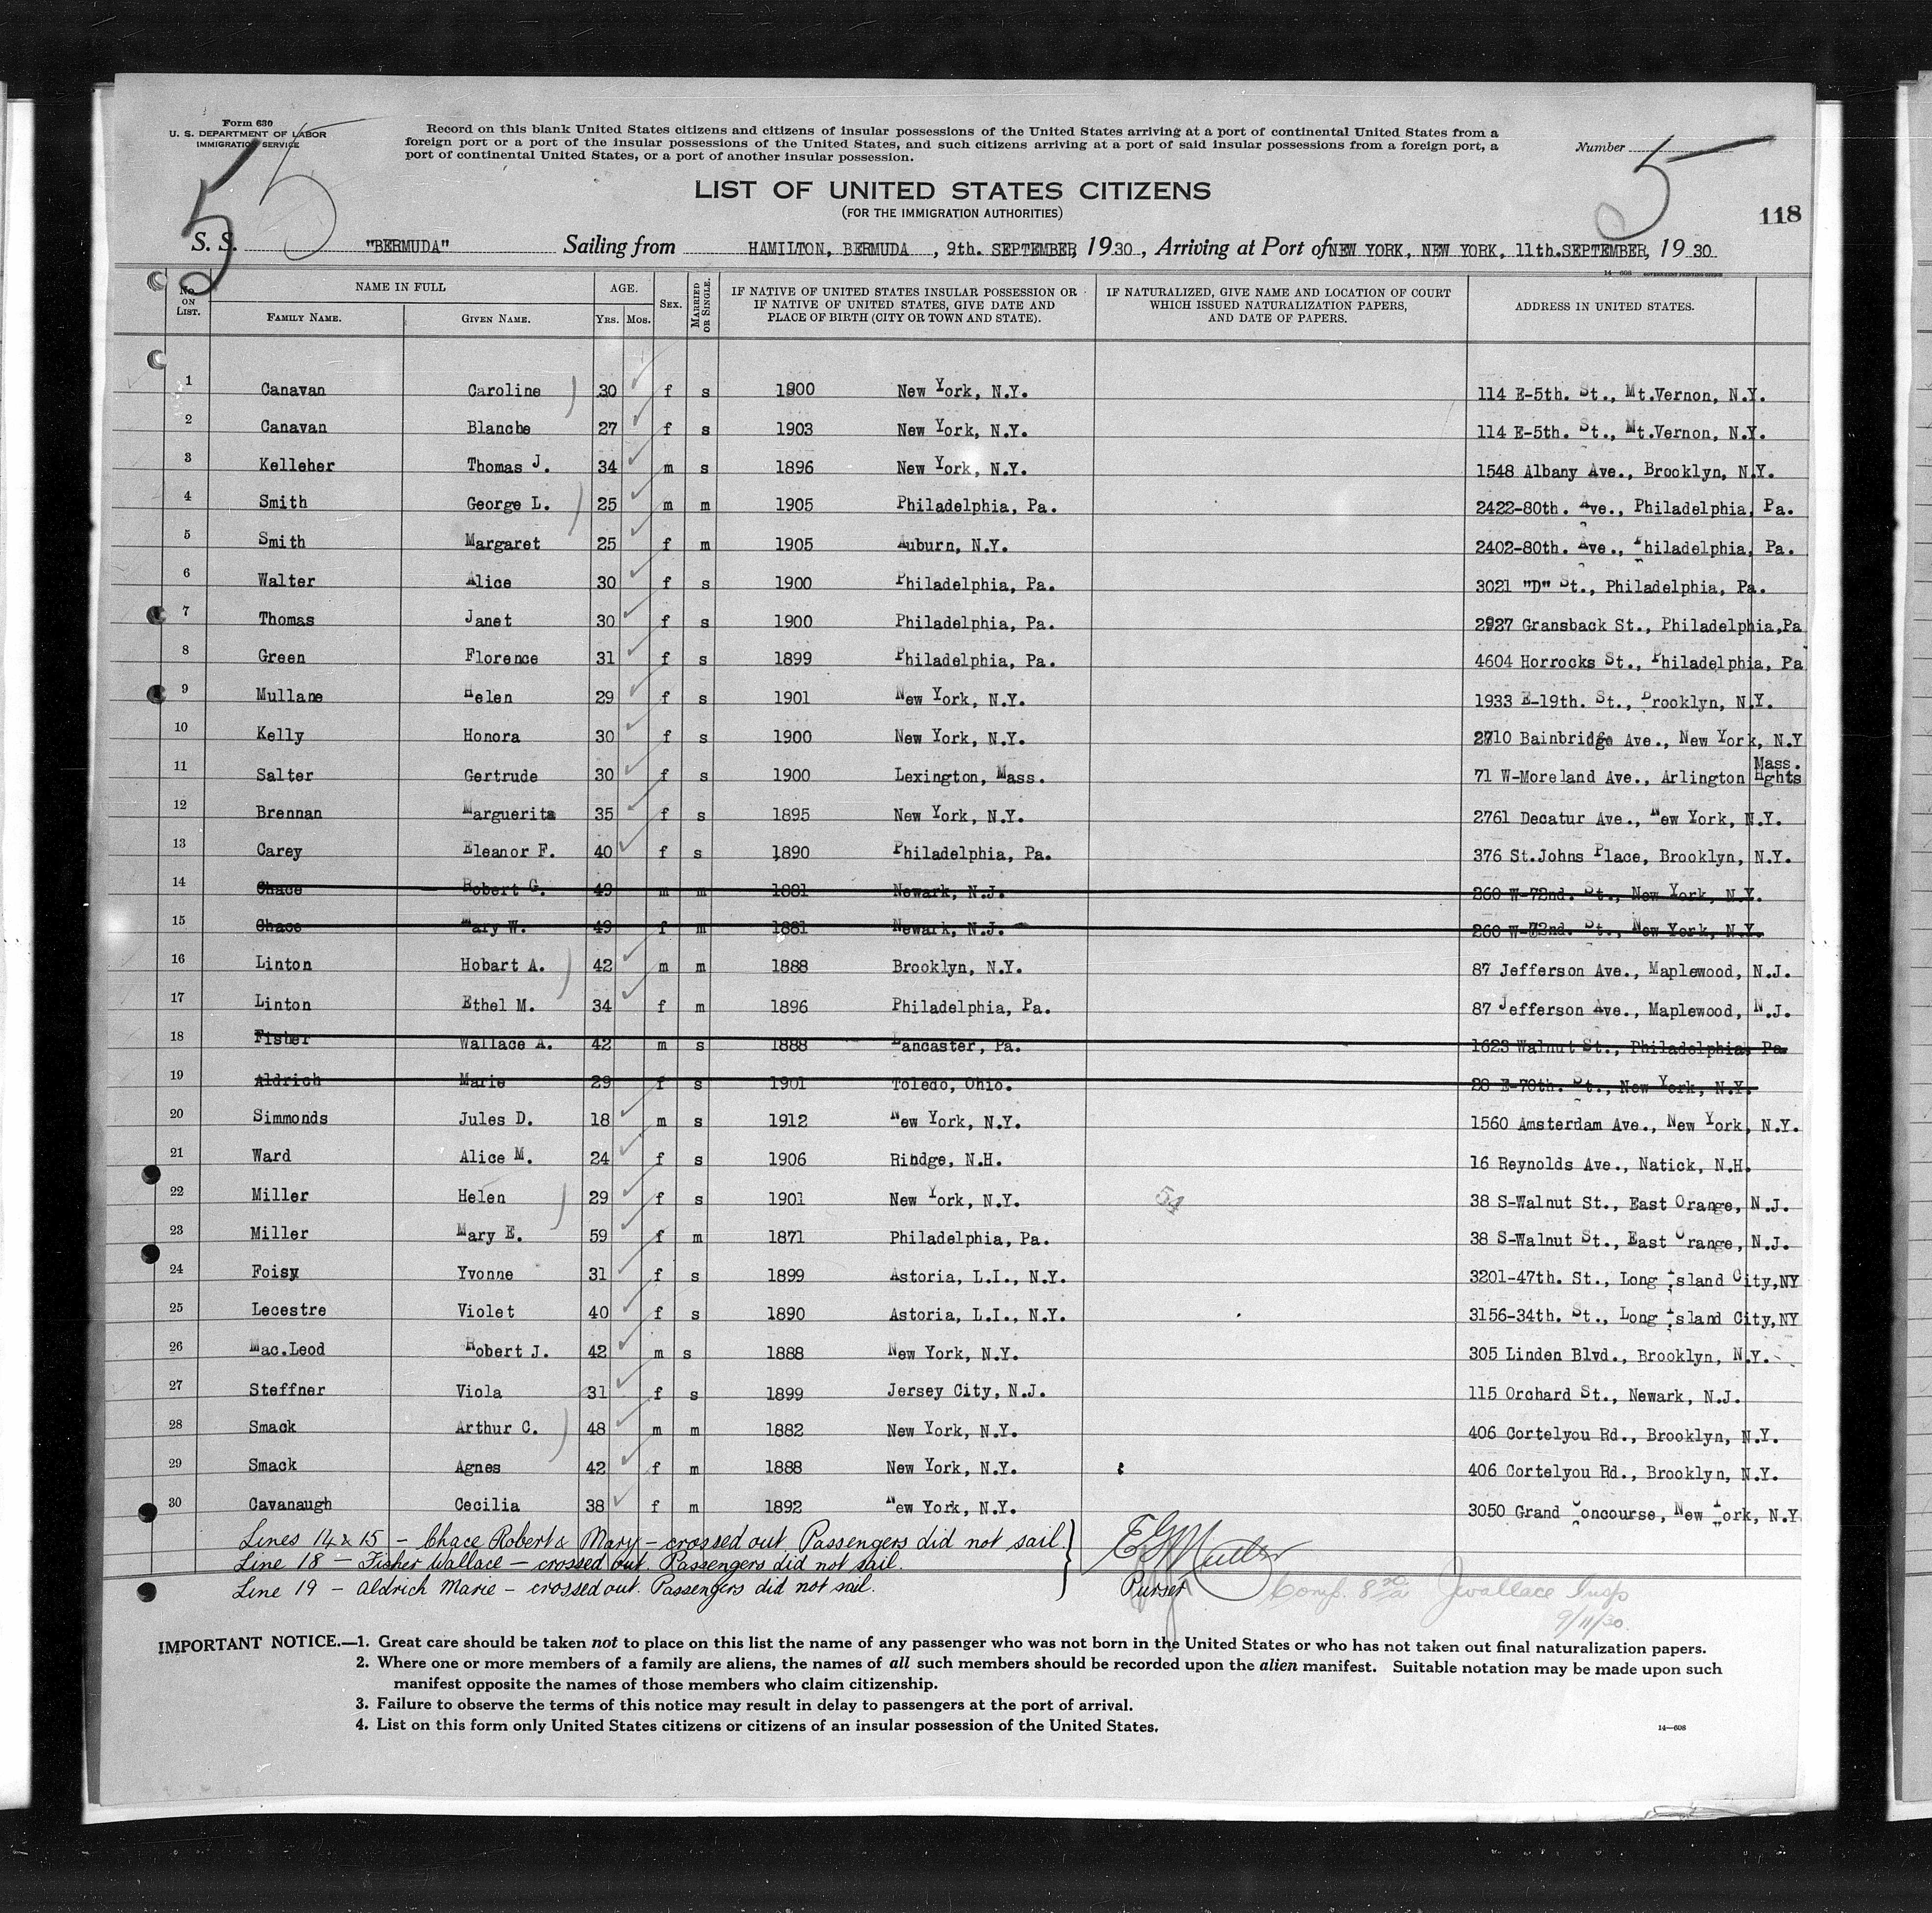 Form 630
U. S. DEPARTMENT OF LABOR
IMMIGRATION SERVICE
Record on this blank United States citizens and citizens of insular possessions of the United States arriving at a port of continental United States from a
foreign port or a port of the insular possessions of the United States, and such citizens arriving at a port of said insular possessions from a foreign port, a
port of continental United States, or a port of another insular possession.
Number 5
5
LIST OF UNITED STATES CITIZENS
(FOR THE IMMIGRATION AUTHORITIES)
118
S. S. "BERMUDA" Sailing from HAMILTON, BERMUDA, 9th. SEPTEMBER, 1930, Arriving at Port of NEW YORK, NEW YORK, 11th. SEPTEMBER, 1930
14—608 GOVERNMENT PRINTING OFFICE
No. ON LIST. NAME IN FULL FAMILY NAME. GIVEN NAME. AGE. YRS. MOS. SEX. MARRIED OR SINGLE. IF NATIVE OF UNITED STATES INSULAR POSSESSION OR IF NATIVE OF UNITED STATES, GIVE DATE AND PLACE OF BIRTH (CITY OR TOWN AND STATE). IF NATURALIZED, GIVE NAME AND LOCATION OF COURT WHICH ISSUED NATURALIZATION PAPERS, AND DATE OF PAPERS. ADDRESS IN UNITED STATES.
1 Canavan Caroline 30 f s 1900 New York, N.Y. 114 E-5th. St., Mt.Vernon, N.Y.
2 Canavan Blanche 27 f s 1903 New York, N.Y. 114 E-5th. St., Mt.Vernon, N.Y.
3 Kelleher Thomas J. 34 m s 1896 New York, N.Y. 1548 Albany Ave., Brooklyn, N.Y.
4 Smith George L. 25 m m 1905 Philadelphia, Pa. 2422-80th. Ave., Philadelphia, Pa.
5 Smith Margaret 25 f m 1905 Auburn, N.Y. 2402-80th. Ave., Philadelphia, Pa.
6 Walter Alice 30 f s 1900 Philadelphia, Pa. 3021 "D" St., Philadelphia, Pa.
7 Thomas Janet 30 f s 1900 Philadelphia, Pa. 2927 Gransback St., Philadelphia,Pa
8 Green Florence 31 f s 1899 Philadelphia, Pa. 4604 Horrocks St., Philadelphia, Pa
9 Mullane Helen 29 f s 1901 New York, N.Y. 1933 E-19th. St., Brooklyn, N.Y.
10 Kelly Honora 30 f s 1900 New York, N.Y. 2710 Bainbridge Ave., New York, N.Y
11 Salter Gertrude 30 f s 1900 Lexington, Mass. 71 W-Moreland Ave., Arlington Hghts Mass.
12 Brennan Marguerita 35 f s 1895 New York, N.Y. 2761 Decatur Ave., New York, N.Y.
13 Carey Eleanor F. 40 f s 1890 Philadelphia, Pa. 376 St.Johns Place, Brooklyn, N.Y.
14 Chace Robert G. 49 m m 1881 Newark, N.J. 260 W-72nd. St., New York, N.Y.
15 Chace Mary W. 49 f m 1881 Newark, N.J. 260 W-72nd. St., New York, N.Y.
16 Linton Hobart A. 42 m m 1888 Brooklyn, N.Y. 87 Jefferson Ave., Maplewood, N.J.
17 Linton Ethel M. 34 f m 1896 Philadelphia, Pa. 87 Jefferson Ave., Maplewood, N.J.
18 Fisher Wallace A. 42 m s 1888 Lancaster, Pa. 1623 Walnut St., Philadelphia, Pa
19 Aldrich Marie 29 f s 1901 Toledo, Ohio. 28 E-70th. St., New York, N.Y.
20 Simmonds Jules D. 18 m s 1912 New York, N.Y. 1560 Amsterdam Ave., New York, N.Y.
21 Ward Alice M. 24 f s 1906 Rindge, N.H. 16 Reynolds Ave., Natick, N.H.
22 Miller Helen 29 f s 1901 New York, N.Y. 54 38 S-Walnut St., East Orange, N.J.
23 Miller Mary E. 59 f m 1871 Philadelphia, Pa. 38 S-Walnut St., East Orange, N.J.
24 Foisy Yvonne 31 f s 1899 Astoria, L.I., N.Y. 3201-47th. St., Long Island City,NY
25 Lecestre Violet 40 f s 1890 Astoria, L.I., N.Y. 3156-34th. St., Long Island City,NY
26 Mac.Leod Robert J. 42 m s 1888 New York, N.Y. 305 Linden Blvd., Brooklyn, N.Y.
27 Steffner Viola 31 f s 1899 Jersey City, N.J. 115 Orchard St., Newark, N.J.
28 Smack Arthur C. 48 m m 1882 New York, N.Y. 406 Cortelyou Rd., Brooklyn, N.Y.
29 Smack Agnes 42 f m 1888 New York, N.Y. 406 Cortelyou Rd., Brooklyn, N.Y.
30 Cavanaugh Cecilia 38 f m 1892 New York, N.Y. 3050 Grand Concourse, New York, N.Y
Lines 14 & 15 – Chace Robert & Mary – crossed out. Passengers did not sail.
Line 18 – Fisher Wallace – crossed out. Passengers did not sail.
Line 19 – Aldrich Marie – crossed out. Passengers did not sail.
Purser
Jwallace Insp
9/11/30.
IMPORTANT NOTICE.—1. Great care should be taken not to place on this list the name of any passenger who was not born in the United States or who has not taken out final naturalization papers.
2. Where one or more members of a family are aliens, the names of all such members should be recorded upon the alien manifest. Suitable notation may be made upon such
manifest opposite the names of those members who claim citizenship.
3. Failure to observe the terms of this notice may result in delay to passengers at the port of arrival.
4. List on this form only United States citizens or citizens of an insular possession of the United States.
14—608